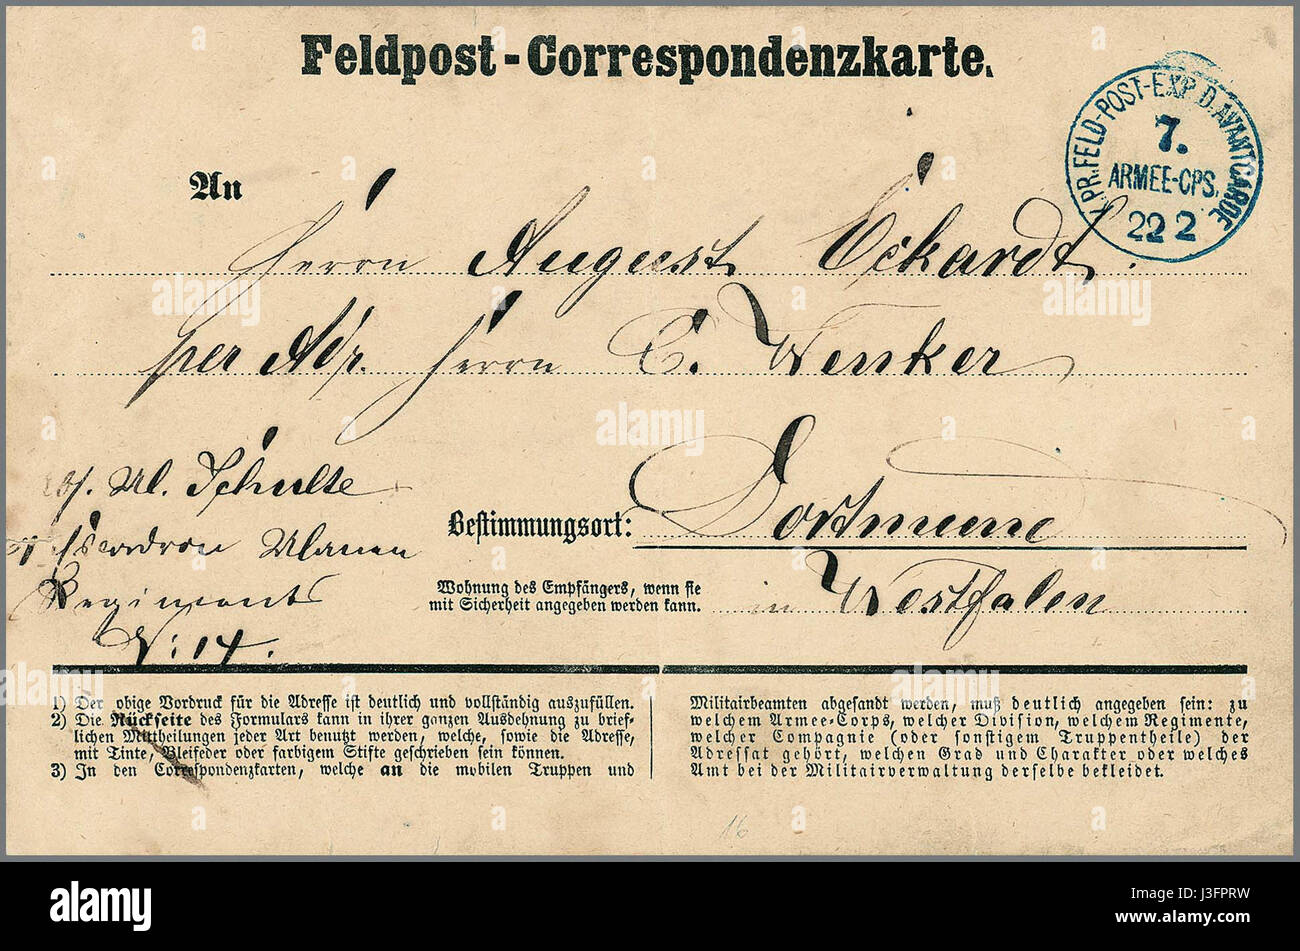 Feldpost-Correspondenzkarte.
K.PR.FELD-POST-EXP. D.AVANTGARDE
7.
ARMEE-CPS.
22 2
An
Herrn August Eckardt
per Adr. Herrn C. Wenker
Ul. Schulte
Escadron Ulanen
Regiments
N: 14.
Bestimmungsort: Dortmund
Wohnung des Empfängers, wenn sie
mit Sicherheit angegeben werden kann.
in Westfalen
1) Der obige Vordruck für die Adresse ist deutlich und vollständig auszufüllen.
2) Die Rückseite des Formulars kann in ihrer ganzen Ausdehnung zu brief-
lichen Mittheilungen jeder Art benutzt werden, welche, sowie die Adresse,
mit Tinte, Bleifeder oder farbigem Stifte geschrieben sein können.
3) In den Correspondenzkarten, welche an die mobilen Truppen und
Militairbeamten abgesandt werden, muß deutlich angegeben sein: zu
welchem Armee-Corps, welcher Division, welchem Regimente,
welcher Compagnie (oder sonstigem Truppentheile) der
Adressat gehört, welchen Grad und Charakter oder welches
Amt bei der Militairverwaltung derselbe bekleidet.
16
alamy
Image ID: J3FPRW
www.alamy.com